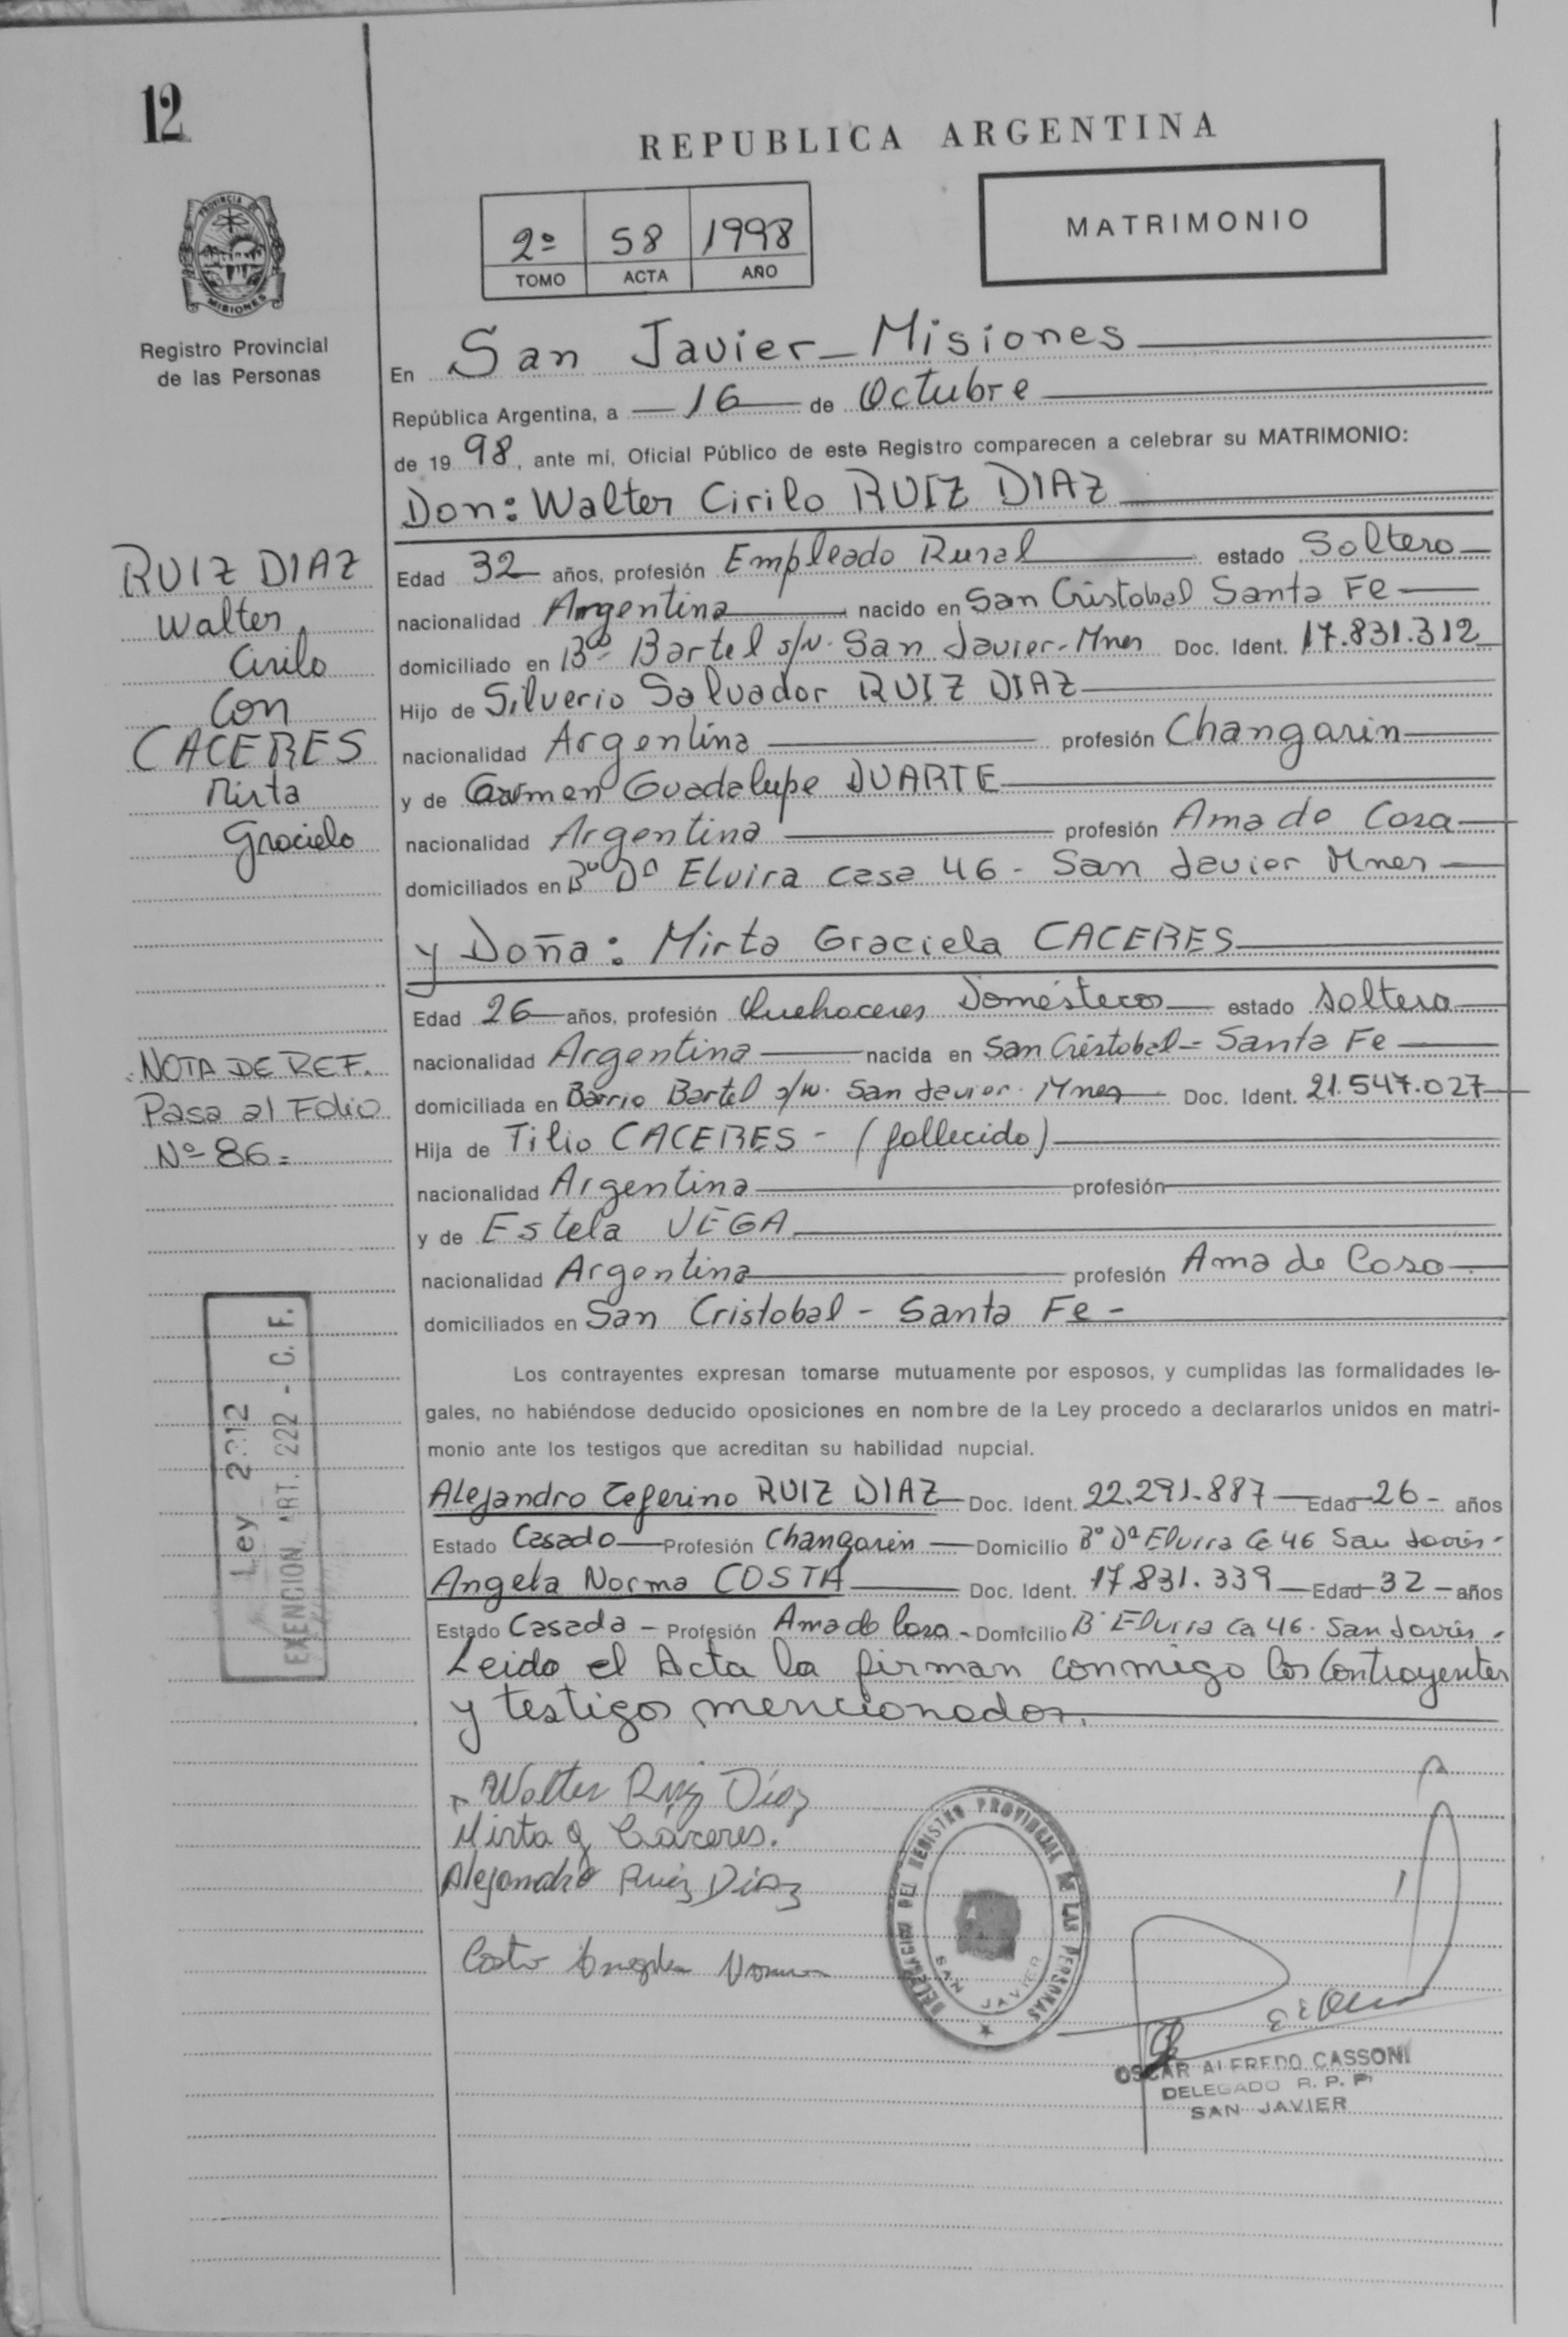 12
REPUBLICA ARGENTINA
PROVINCIA DE
MISIONES
2º 58 1998
TOMO ACTA AÑO
MATRIMONIO
Registro Provincial
de las Personas
En San Javier - Misiones
República Argentina, a 16 de Octubre
de 1998, ante mí, Oficial Público de este Registro comparecen a celebrar su MATRIMONIO:
Don: Walter Cirilo RUIZ DIAZ
RUIZ DIAZ
Walter
Cirilo
Con
CACERES
Mirta
Graciela
Edad 32 años, profesión Empleado Rural estado Soltero
nacionalidad Argentina nacido en San Cristobal Santa Fe
domiciliado en Bº Bartel s/N. San Javier - Mnes Doc. Ident. 17.831.312
Hijo de Silverio Salvador RUIZ DIAZ
nacionalidad Argentina profesión Changarin
y de Carmen Guadalupe DUARTE
nacionalidad Argentina profesión Ama de Casa
domiciliados en Bº Dª Elvira casa 46 - San Javier Mnes
y Doña: Mirta Graciela CACERES
Edad 26 años, profesión Quehaceres Domésticos estado Soltera
nacionalidad Argentina nacida en San Cristobal - Santa Fe
domiciliada en Barrio Bartel s/N. San Javier - Mnes Doc. Ident. 21.547.027
Hija de Tilio CACERES - (fallecido)
nacionalidad Argentina profesión
y de Estela VEGA
nacionalidad Argentina profesión Ama de Casa
domiciliados en San Cristobal - Santa Fe -
NOTA DE REF.
Pasa al Folio
Nº 86 =
Los contrayentes expresan tomarse mutuamente por esposos, y cumplidas las formalidades le-
gales, no habiéndose deducido oposiciones en nombre de la Ley procedo a declararlos unidos en matri-
monio ante los testigos que acreditan su habilidad nupcial.
Ley 2312
EXENCION ART. 222 - C. F.
Alejandro Ceferino RUIZ DIAZ Doc. Ident. 22.291.887 Edad 26 - años
Estado Casado Profesión Changarin Domicilio Bº Dª Elvira Ca 46 San Javier -
Angela Norma COSTA Doc. Ident. 17.831.339 Edad 32 - años
Estado Casada - Profesión Ama de Casa - Domicilio Bº Elvira Ca 46 - San Javier -
Leido el Acta la firman conmigo los Contrayentes
y testigos mencionados.
Walter Ruiz Díaz
Mirta G Cáceres.
Alejandro Ruiz Díaz
Costa Angela Norma
DELEGACION DEL REGISTRO PROVINCIAL DE LAS PERSONAS
SAN JAVIER
OSCAR ALFREDO CASSONI
DELEGADO R. P. P.
SAN JAVIER